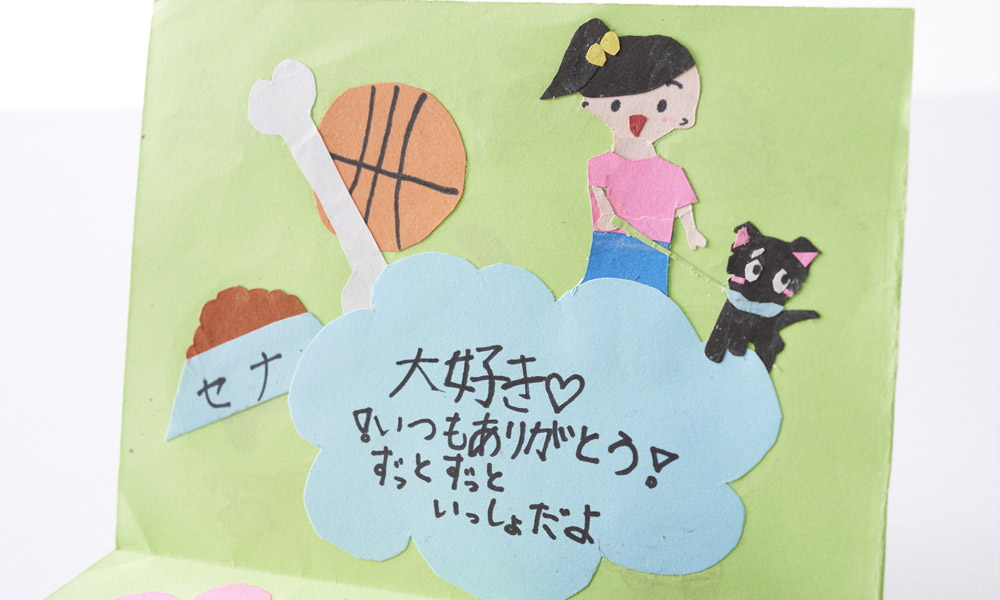 セナ
大好き♡
!いつもありがとう!
ずっとずっと
いっしょだよ